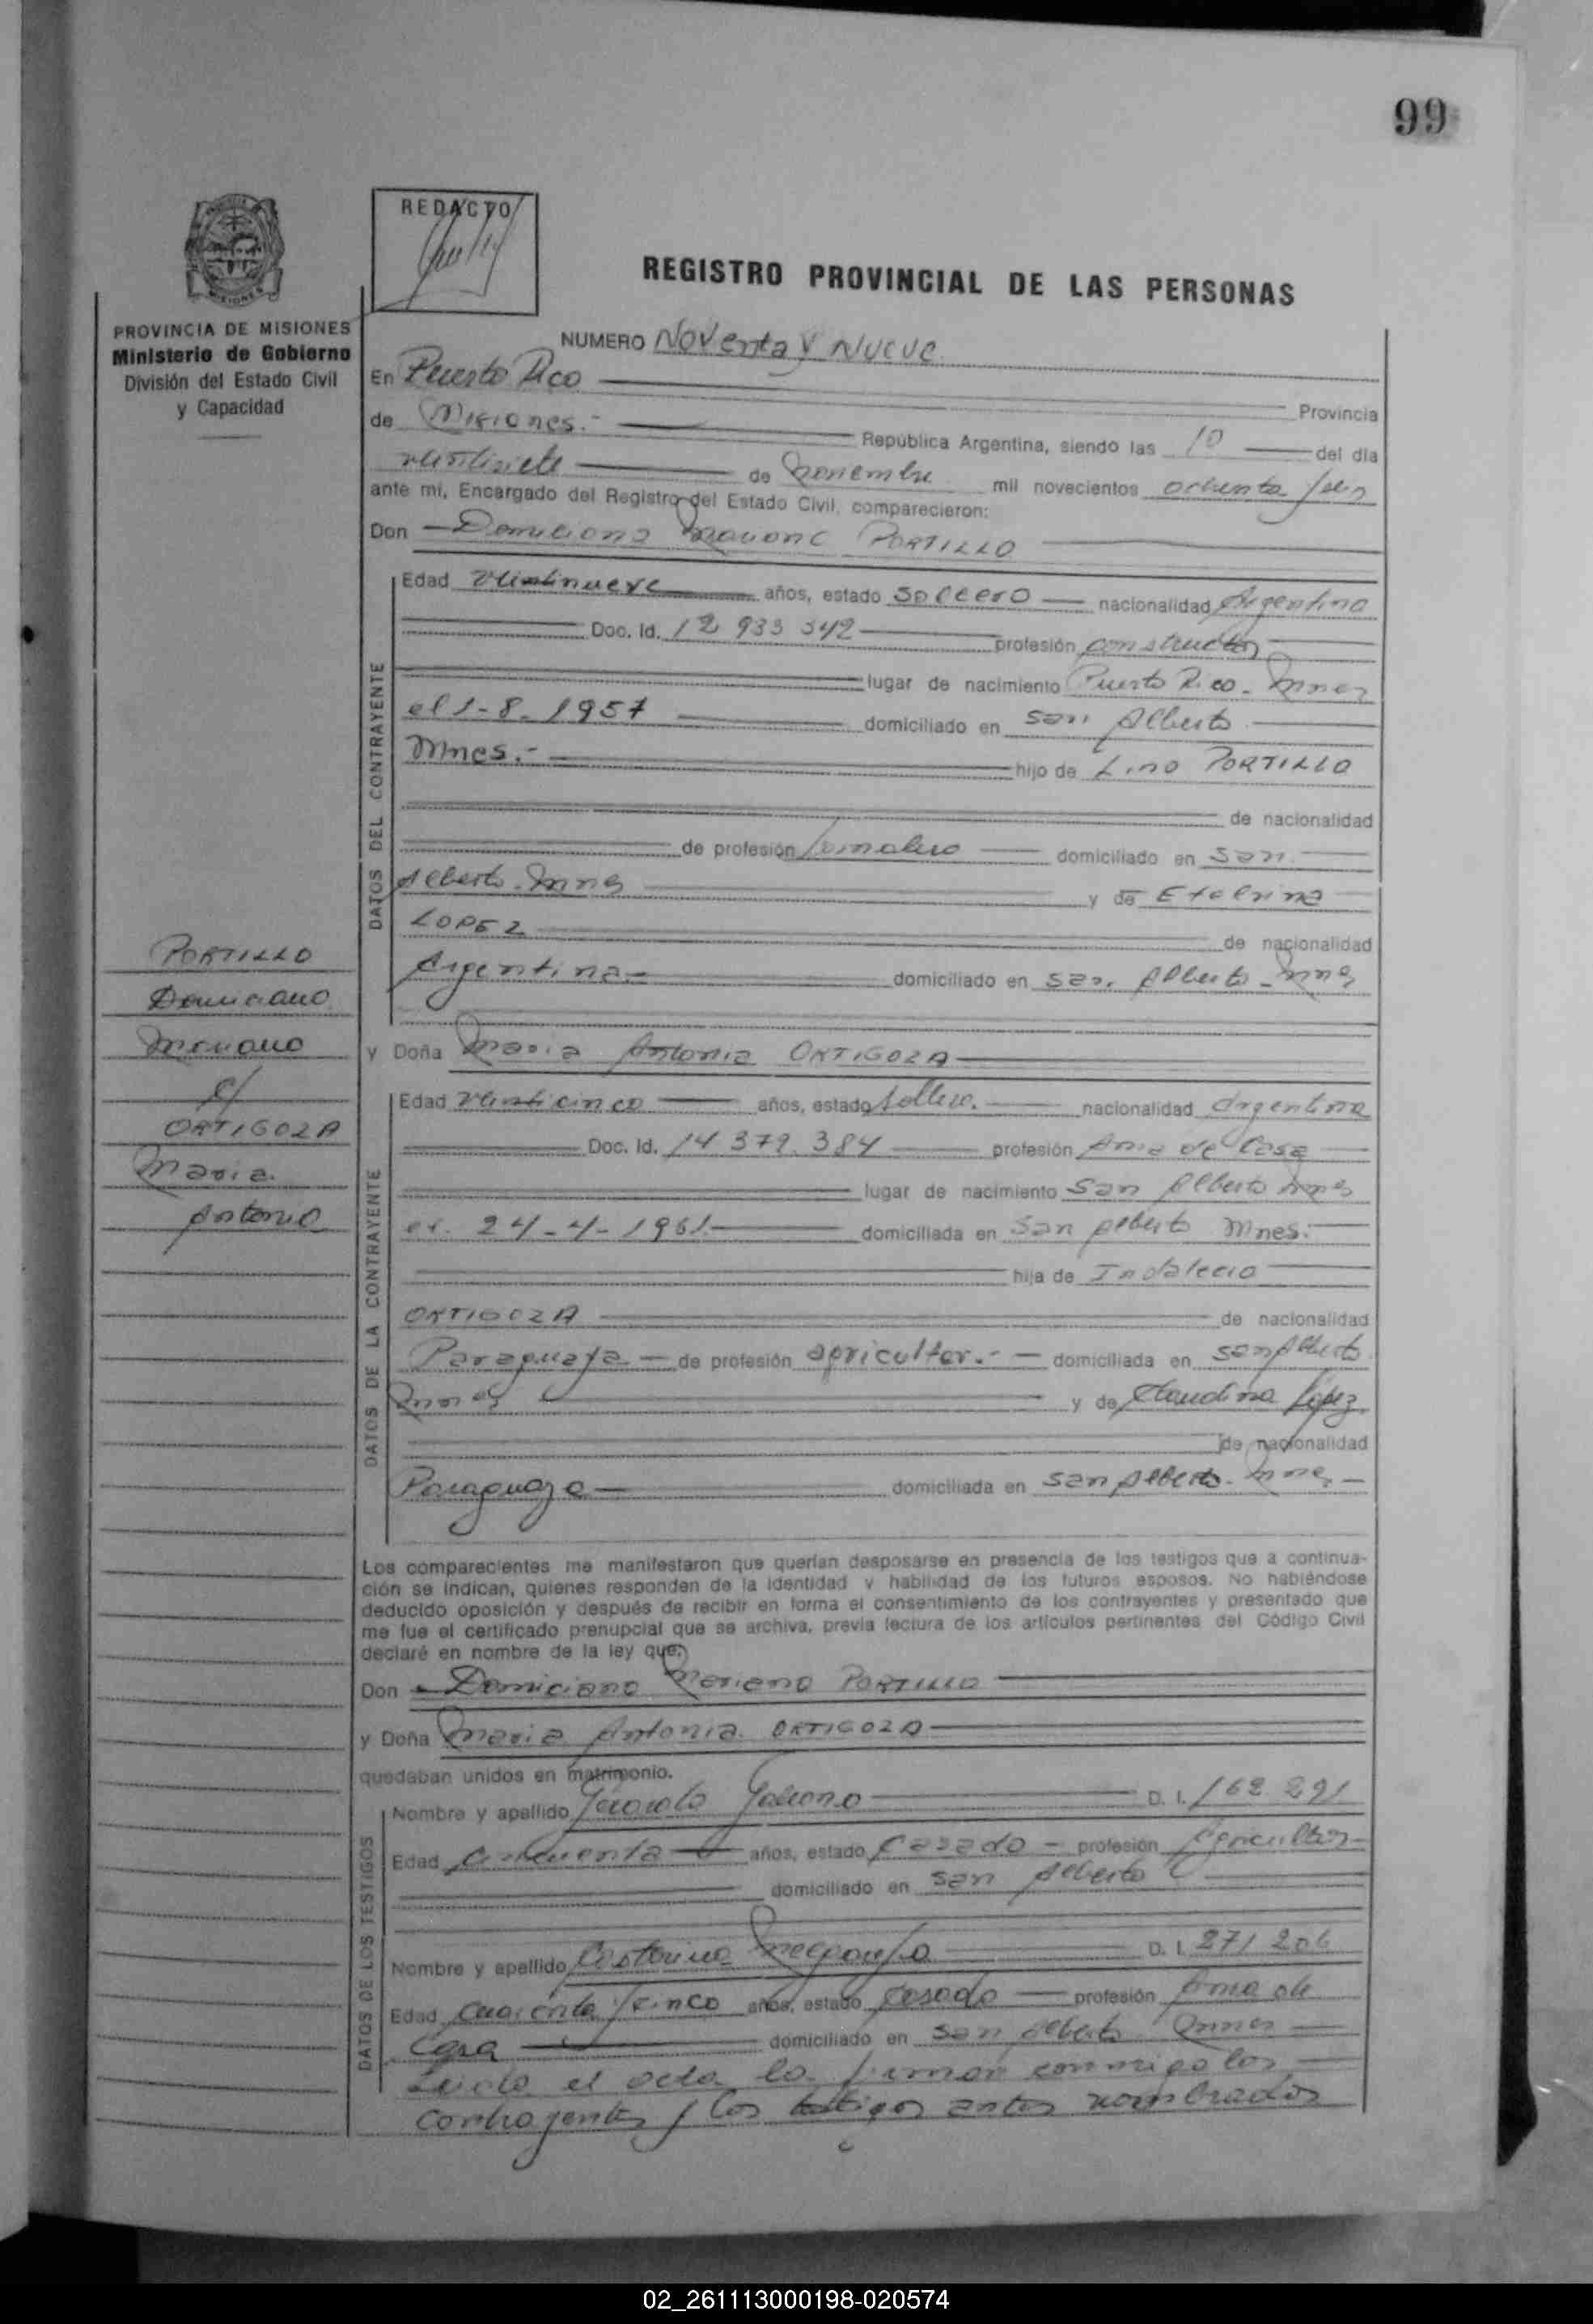 99
REDACTO
REGISTRO PROVINCIAL DE LAS PERSONAS
PROVINCIA DE MISIONES
Ministerio de Gobierno
División del Estado Civil
y Capacidad
NUMERO Noventa y Nueve
En Puerto Rico Provincia
de Misiones.- República Argentina, siendo las 10 del día
veintisiete de noviembre mil novecientos ochenta y seis
ante mí, Encargado del Registro del Estado Civil, comparecieron:
Don Domiciano Mariano PORTILLO
DATOS DEL CONTRAYENTE
Edad veintinueve años, estado Soltero nacionalidad Argentina
Doc. Id. 12 933 342 profesión constructor
lugar de nacimiento Puerto Rico - Mnes
el 1-8-1957 domiciliado en San Alberto
Mnes.- hijo de Lino PORTILLO
de nacionalidad
de profesión Jornalero domiciliado en San
Alberto - Mnes y de Etelvina
LOPEZ de nacionalidad
Argentina.- domiciliado en San Alberto - Mnes
y Doña Maria Antonia ORTIGOZA
DATOS DE LA CONTRAYENTE
Edad veinticinco años, estado Soltera. nacionalidad Argentina
Doc. Id. 14 379. 384 profesión Ama de Casa
lugar de nacimiento San Alberto Mnes
el. 24-4-1961 domiciliada en San Alberto Mnes.
hija de Indalecio
ORTIGOZA de nacionalidad
Paraguaya de profesión agricultor.- domiciliada en San Alberto
Mnes y de Claudina Lopez
de nacionalidad
Paraguaya domiciliada en San Alberto - Mnes
PORTILLO
Domiciano
Mariano
c/
ORTIGOZA
Maria
Antonia
Los comparecientes me manifestaron que querían desposarse en presencia de los testigos que a continua-
ción se indican, quienes responden de la identidad y habilidad de los futuros esposos. No habiéndose
deducido oposición y después de recibir en forma el consentimiento de los contrayentes y presentado que
me fue el certificado prenupcial que se archiva, previa lectura de los artículos pertinentes del Código Civil
declaré en nombre de la ley que:
Don Domiciano Mariano PORTILLO
y Doña Maria Antonia ORTIGOZA
quedaban unidos en matrimonio.
DATOS DE LOS TESTIGOS
Nombre y apellido Galeano D. I. 162 291
Edad Cincuenta años, estado Casado profesión Agricultor
domiciliado en San Alberto
Nombre y apellido D. I. 271 206
Edad Cuarenta y cinco años, estado Casado profesión Ama de
Casa domiciliado en San Alberto Mnes
Leida el acta la firman conmigo los
contrayentes y los testigos antes nombrados
02_261113000198-020574